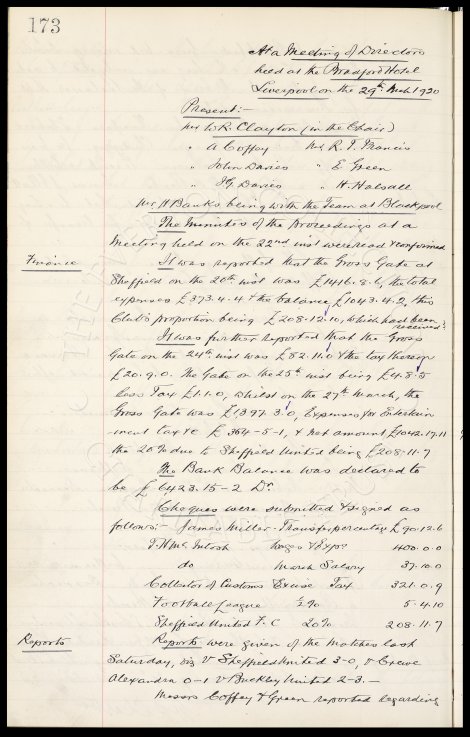 173
At a Meeting of Directors
held at the Bradford Hotel
Liverpool on the 29th. Mch 1920
Present:-
Mr W.R. Clayton (in the Chair)
" A Coffey Mr R. T. Francis
" John Davies " E Green
" J.G. Davies " H. Halsall
Mr H Banks being with the Team at Blackpool
The Minutes of the Proceedings at a
Meeting held on the 22nd inst were read & confirmed
Finance
It was reported that the Gross Gate at
Sheffield on the 20th inst was £1416.8.6, the total
expenses £373.4.4 & the balance £1043.4.2, this
Club's proportion being £208.12.10, which had been
received.
It was further reported that the Gross
Gate on the 24th inst was £82.11.0 & the tax thereon
£20.9.0. The Gate on the 25th inst being £4.8.5
less Tax £1.1.0, whilst on the 27th March, the
Gross Gate was £1397.3.0, Expenses for Entertain
-ment tax &c £354-5-1, & net amount £1042.17.11
the 20% due to Sheffield United being £208.11.7
The Bank Balance was declared to
be £6423.15-2 Dr.
Cheques were submitted & signed as
follows:- James Miller - Transfer percentage £90.12.6
T.H. McIntosh Wages & Exps 400.0.0
do March Salary 37.10.0
Collector of Customs Excise Tax 321.0.9
Football League ½% 5.4.10
Sheffield United F.C 20% 208.11.7
Reports
Reports were given of the Matches last
Saturday, viz v Sheffield United 3-0, v Crewe
Alexandra 0-1 v Buckley United 2-3.-
Messrs Coffey & Green reported regarding